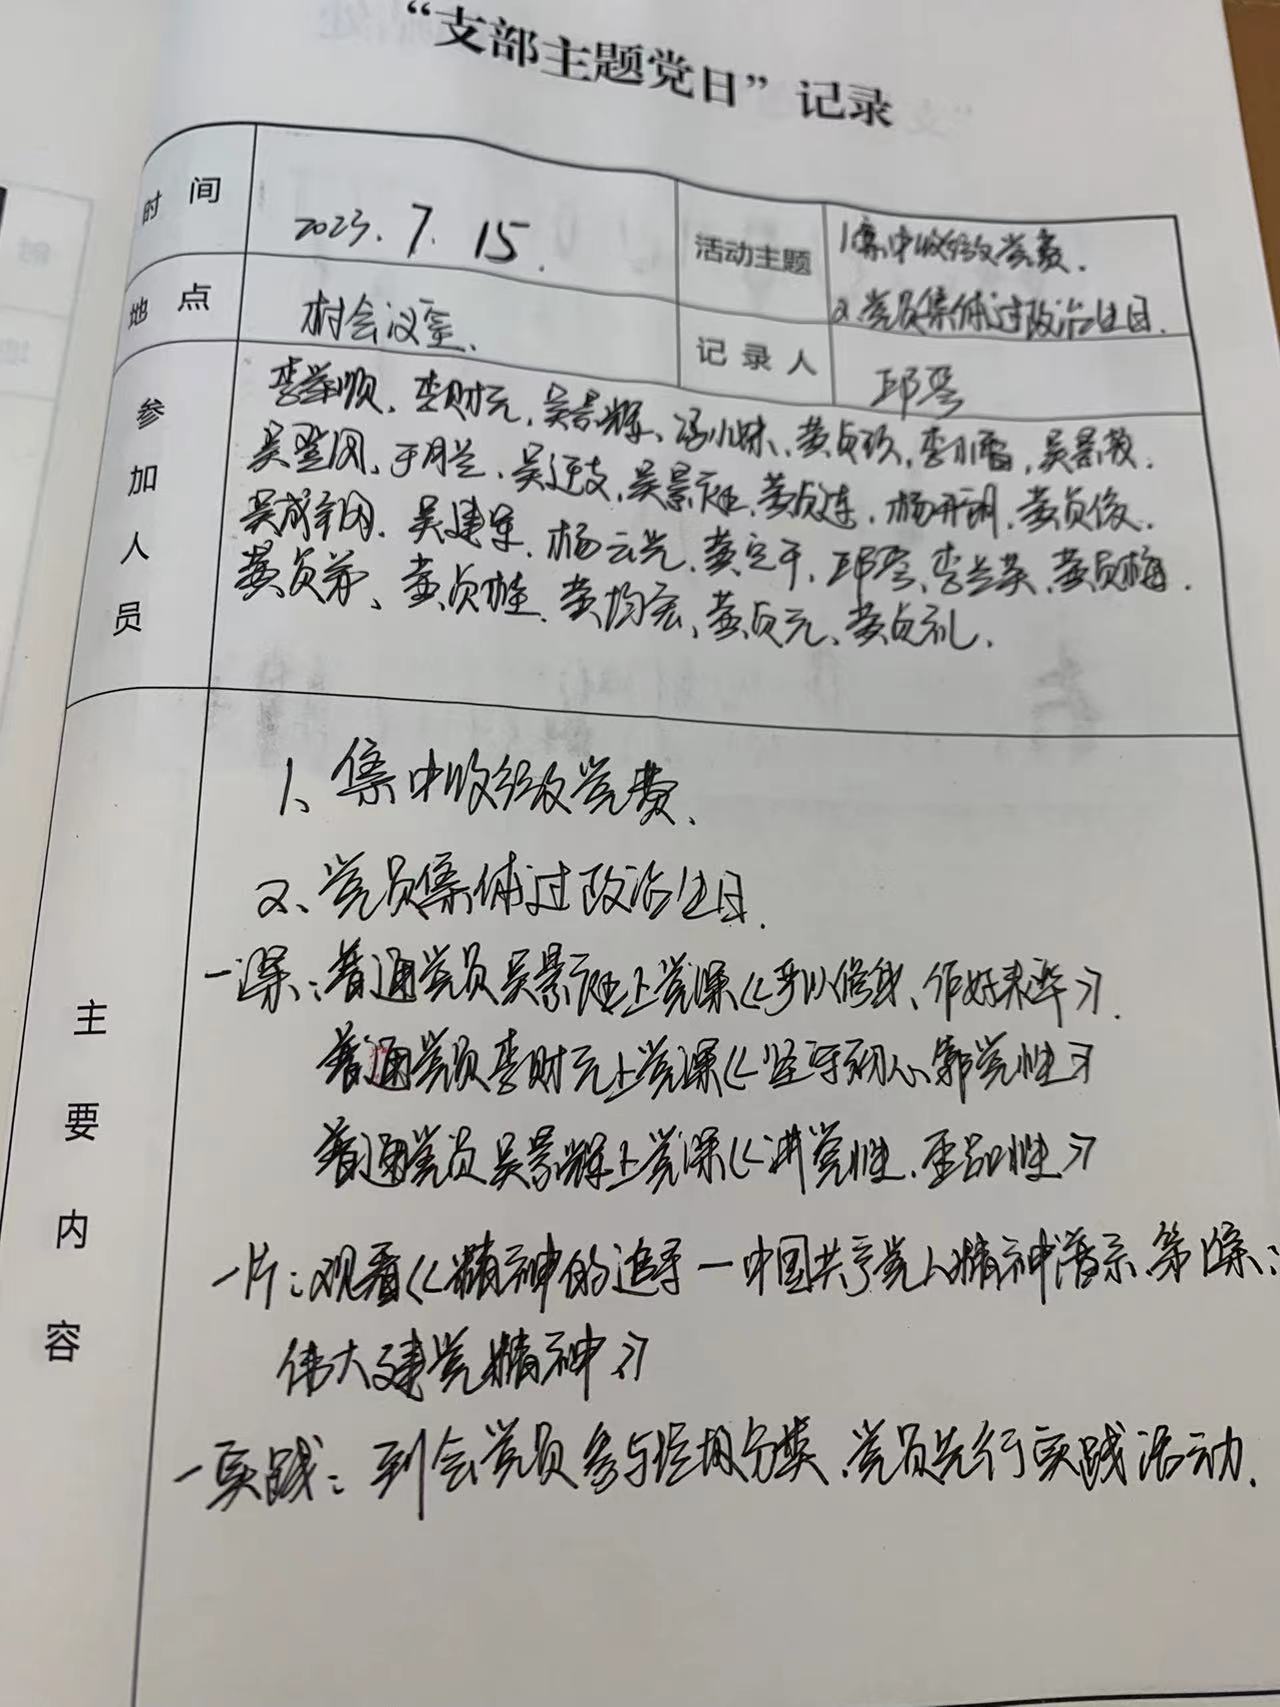 “支部主题党日”记录
时间
2023.7.15.
活动主题
1、集中收缴党费.
2、党员集体过政治生日.
地点
村会议室.
记录人
邱琴
参加人员
李荣顺、李财元、吴景辉、冯小妹、黄贞珍、李小雪、吴景教.
吴登国、于月兰、吴廷支、吴景、黄贞连、杨开明、黄贞俊.
吴成、吴建军、杨云光、黄定干、邱琴、李兰英、黄贞梅.
黄贞弟、黄贞桂、黄均宏、黄贞元、黄贞礼.
主要内容
1、集中收缴党费、
2、党员集体过政治生日.
一课:普通党员吴景上党课《严以修身、作好表率》.
普通党员李财元上党课《坚守初心 党性》
普通党员吴景辉上党课《讲党性、重品性》
一片:观看《精神的追寻—中国共产党人精神谱系 第1课:
伟大建党精神》
一实践:到会党员参与垃圾分类、党员先行实践活动.